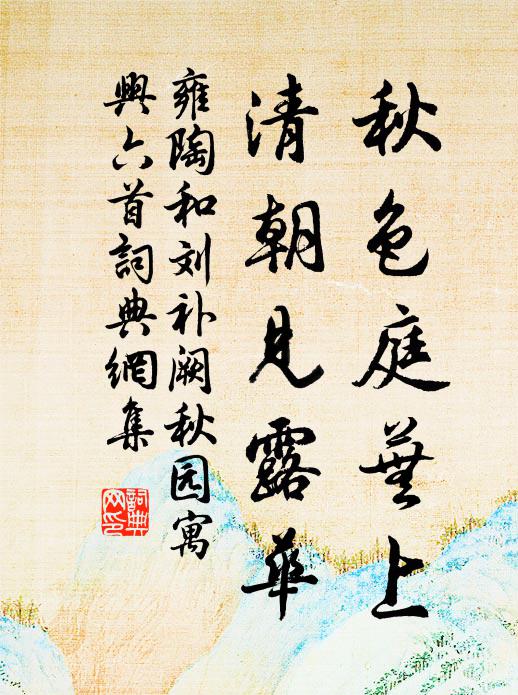 秋色庭芜上
清朝见露华
雍陶和刘补阙秋园寓
兴六首词典网集
词典
网印